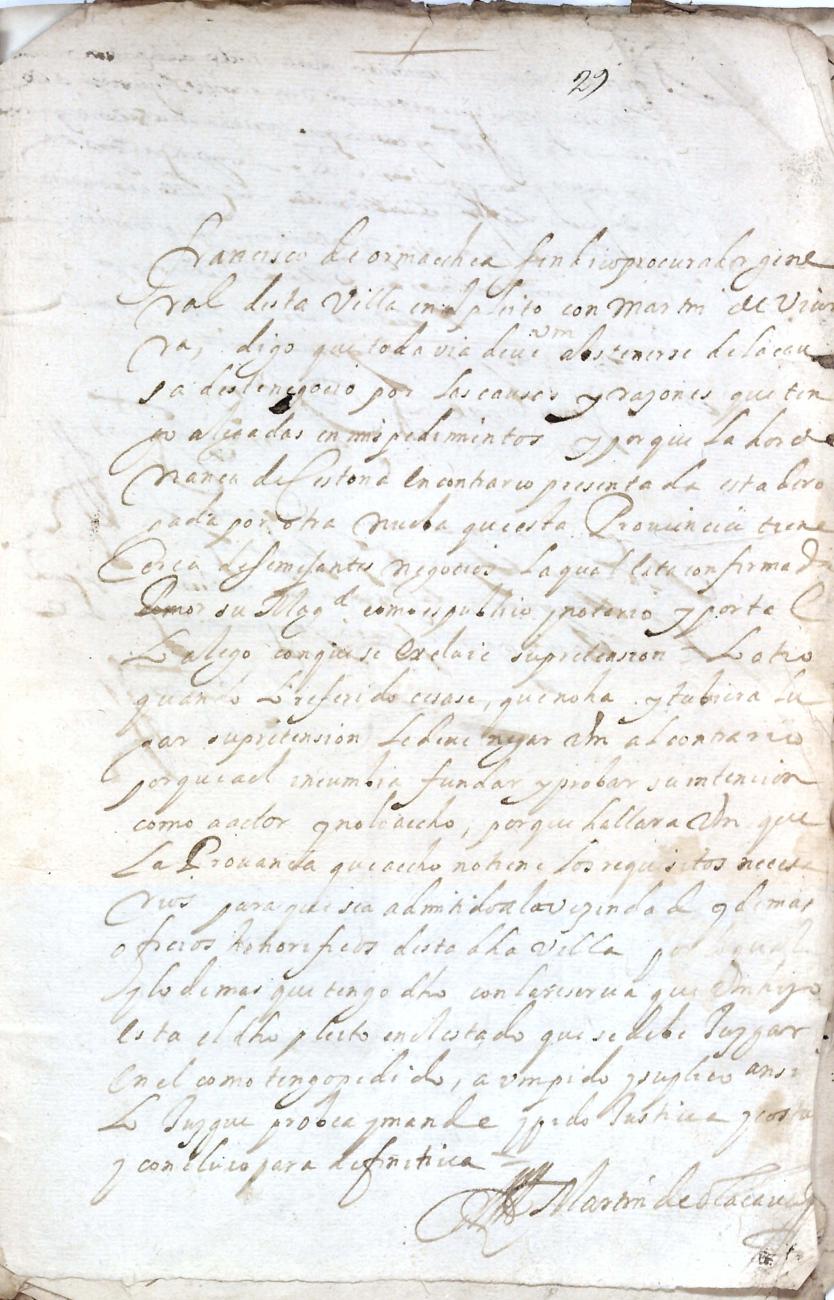 29
Francisco de ormaechea sindico procurador gene
ral desta Villa en el pleito con Martin de
ra, digo que toda via deue vm abstenerse de la cau
sa deste negocio por las causas y razones que ten
go alegadas en mis pedimientos y porque la horde
nança de Cestona en contrario presentada esta dero
gada por otra nueba que esta Prouincia tiene
Cerca de semejantes negocios la qual esta confirmada
por su Magd como es publico y notorio y porta
Lo alego conque se excluie su pretension = Lo otro
quando lo referido cesase, que no ha y tubiera lu
gar su pretension le deue negar Vm al contrario
porque a el incumbia fundar y probar su intencion
como actor y no lo a echo, porque hallara Vm que
La Prouança que a echo no tiene los requisitos necesa
rios para que sea admitido a la vezindad y demas
oficios honorificos desta dha villa por lo qual
y lo demas que tengo dho con la reserua que Vm hizo
esta el dho pleito en el estado que se debe Juzgar
en el como tengo pedido, a vm pido y suplico ansi
Lo Juzgue probea y mande y pido Justicia y costas
y concluio para difinitiua =
Martin de